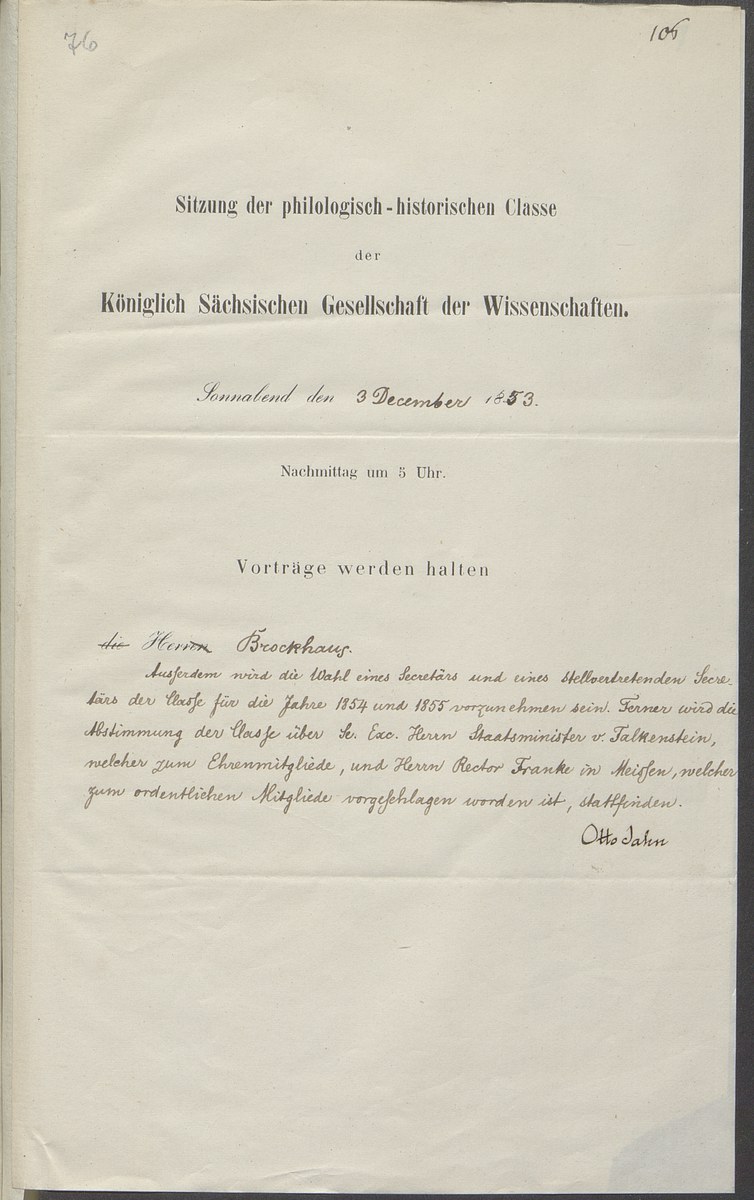 76
106
Sitzung der philologisch-historischen Classe
der
Königlich Sächsischen Gesellschaft der Wissenschaften.
Sonnabend den 3 December 1853.
Nachmittag um 5 Uhr.
Vorträge werden halten
die Herren Brockhaus.
Ausserdem wird die Wahl eines Secretärs und eines stellvertretenden Secre-
tärs der Classe für die Jahre 1854 und 1855 vorzunehmen sein. Ferner wird die
Abstimmung der Classe über Se. Exc. Herrn Staatsminister v. Falkenstein,
welcher zum Ehrenmitgliede, und Herrn Rector Franke in Meissen, welcher
zum ordentlichen Mitgliede vorgeschlagen worden ist, stattfinden.
Otto Jahn